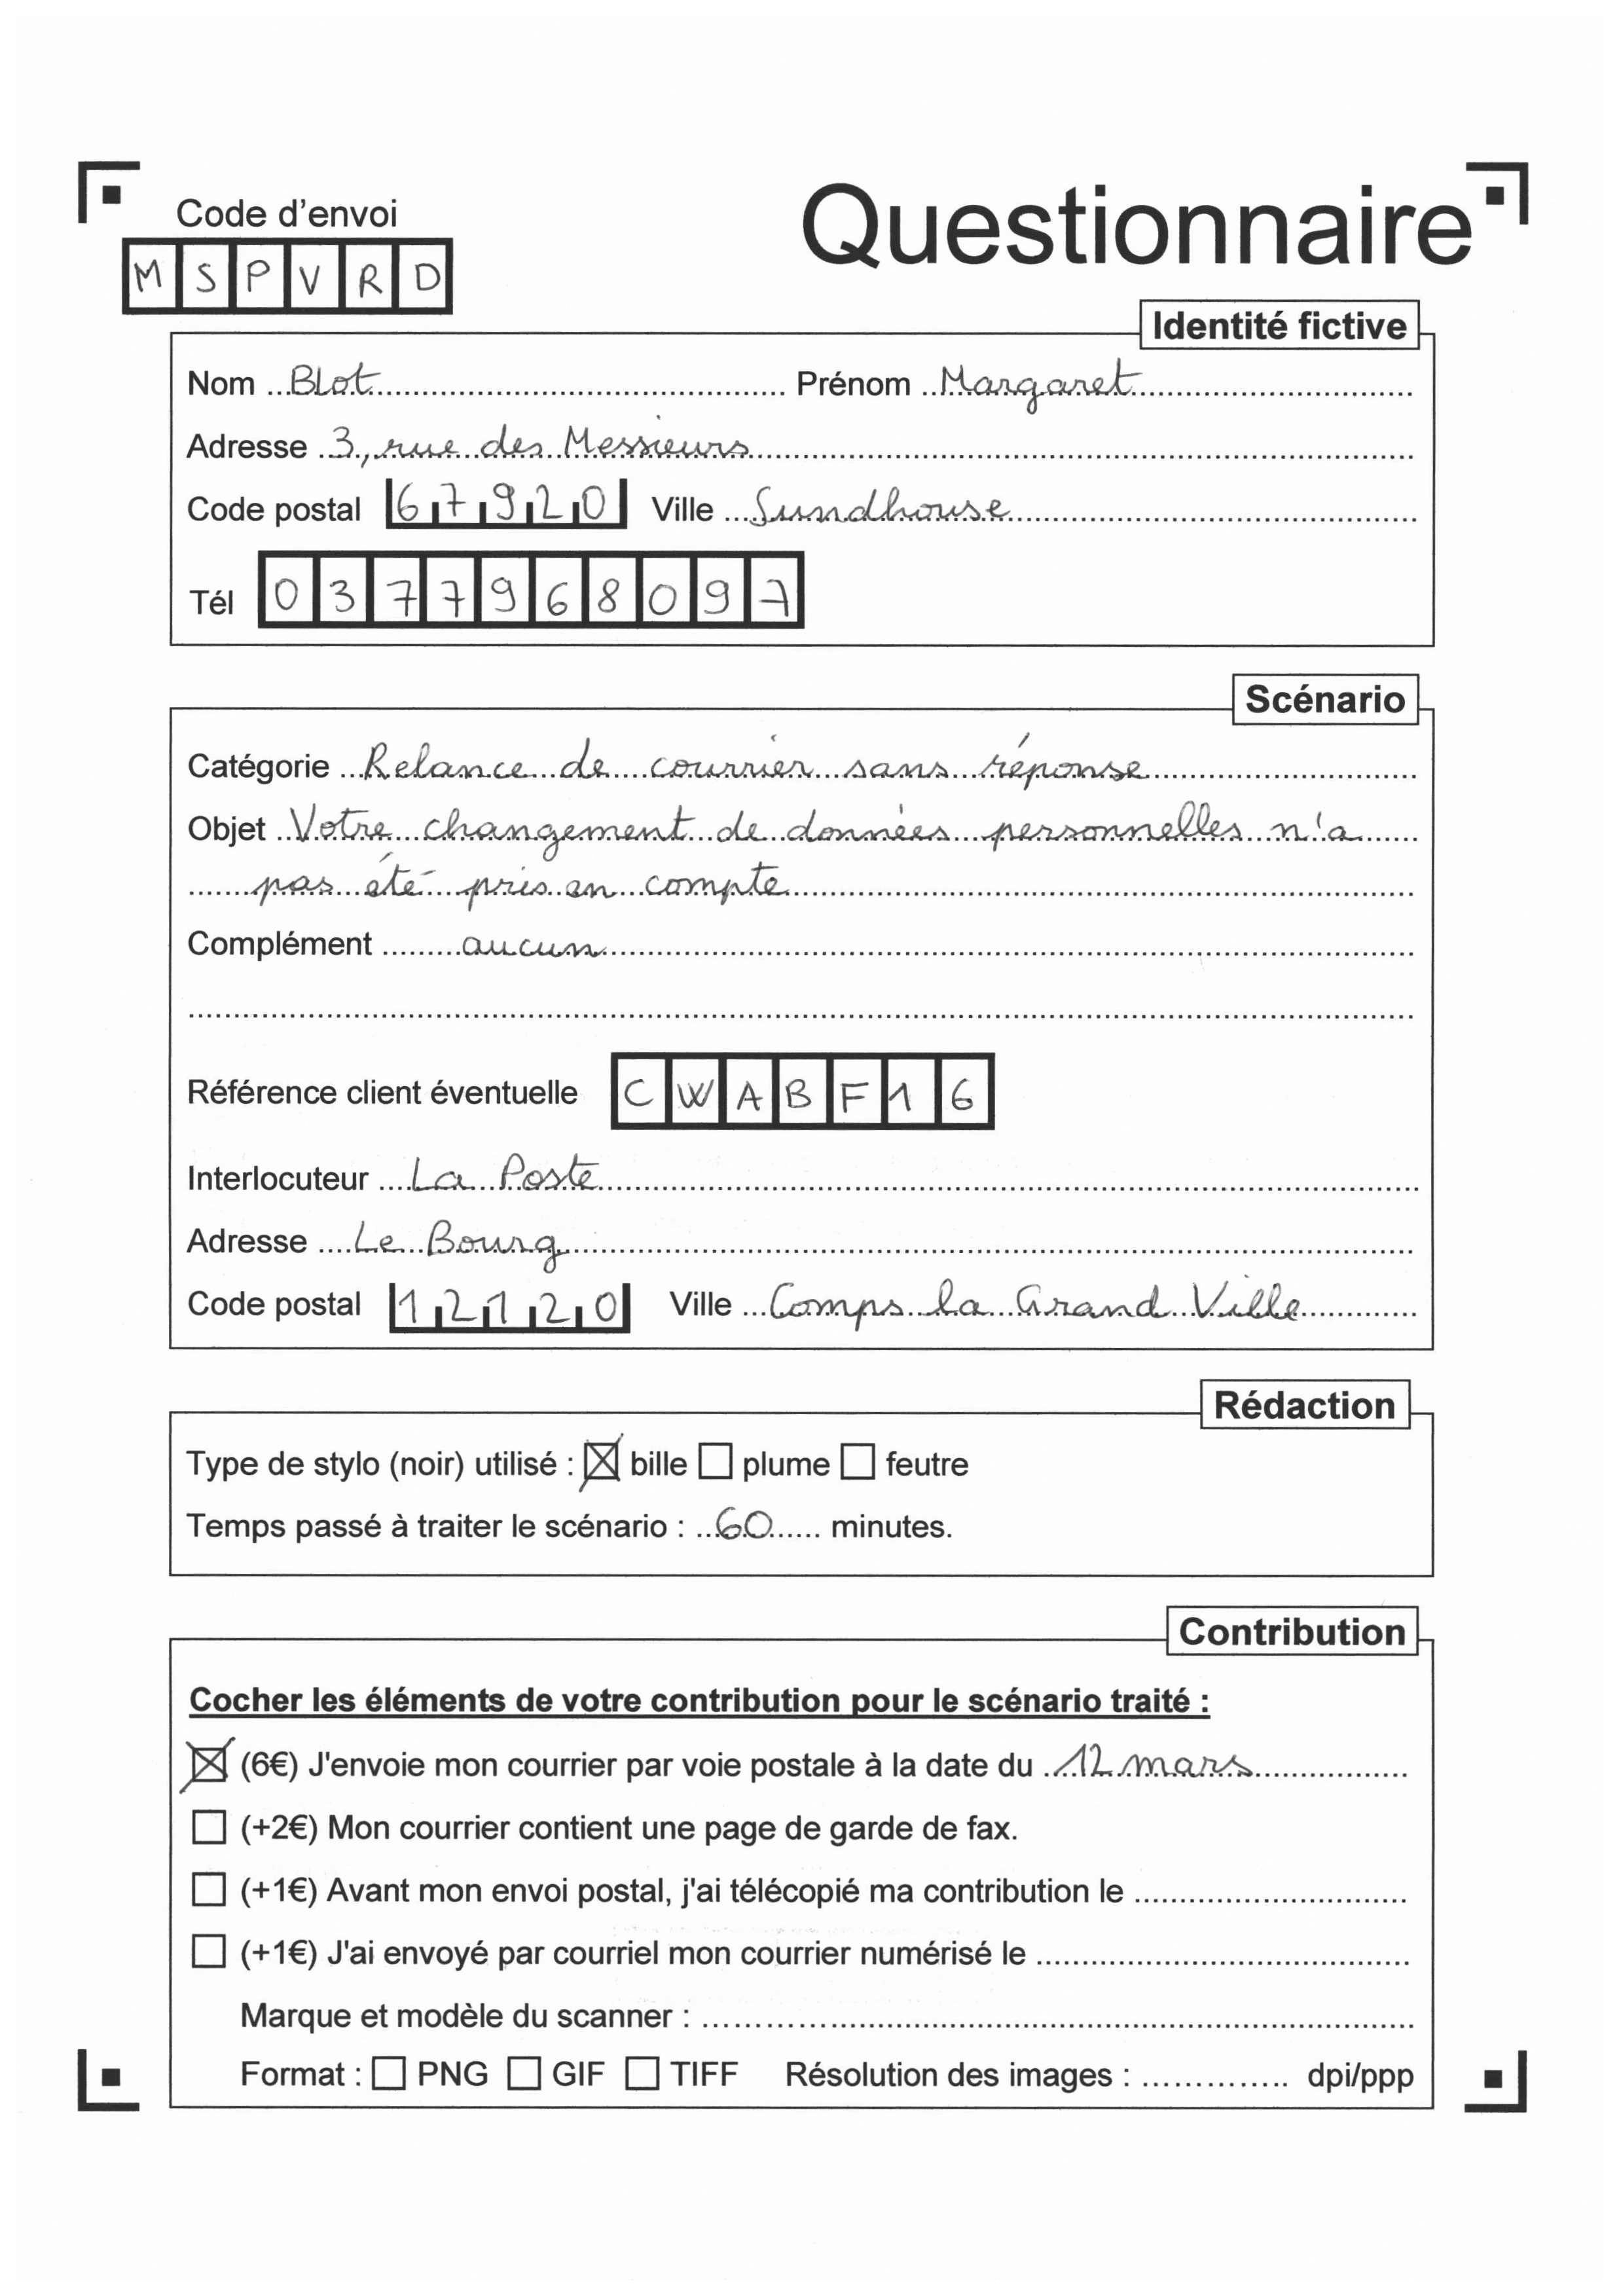 Code d'envoi
Questionnaire
M S P V R D
Identité fictive
Nom Blot Prénom Margaret
Adresse 3, rue des Messieurs
Code postal 67920 Ville Sundhouse
Tél 0377968097
Scénario
Catégorie Relance de courrier sans réponse
Objet Votre changement de données personnelles n'a
pas été pris en compte
Complément aucun
Référence client éventuelle C W A B F 1 6
Interlocuteur La Poste
Adresse Le Bourg
Code postal 12120 Ville Comps la Grand Ville
Rédaction
Type de stylo (noir) utilisé : ☒ bille ☐ plume ☐ feutre
Temps passé à traiter le scénario : 60 minutes.
Contribution
Cocher les éléments de votre contribution pour le scénario traité :
☒ (6€) J'envoie mon courrier par voie postale à la date du 12 mars
☐ (+2€) Mon courrier contient une page de garde de fax.
☐ (+1€) Avant mon envoi postal, j'ai télécopié ma contribution le
☐ (+1€) J'ai envoyé par courriel mon courrier numérisé le
Marque et modèle du scanner :
Format : ☐ PNG ☐ GIF ☐ TIFF Résolution des images : dpi/ppp